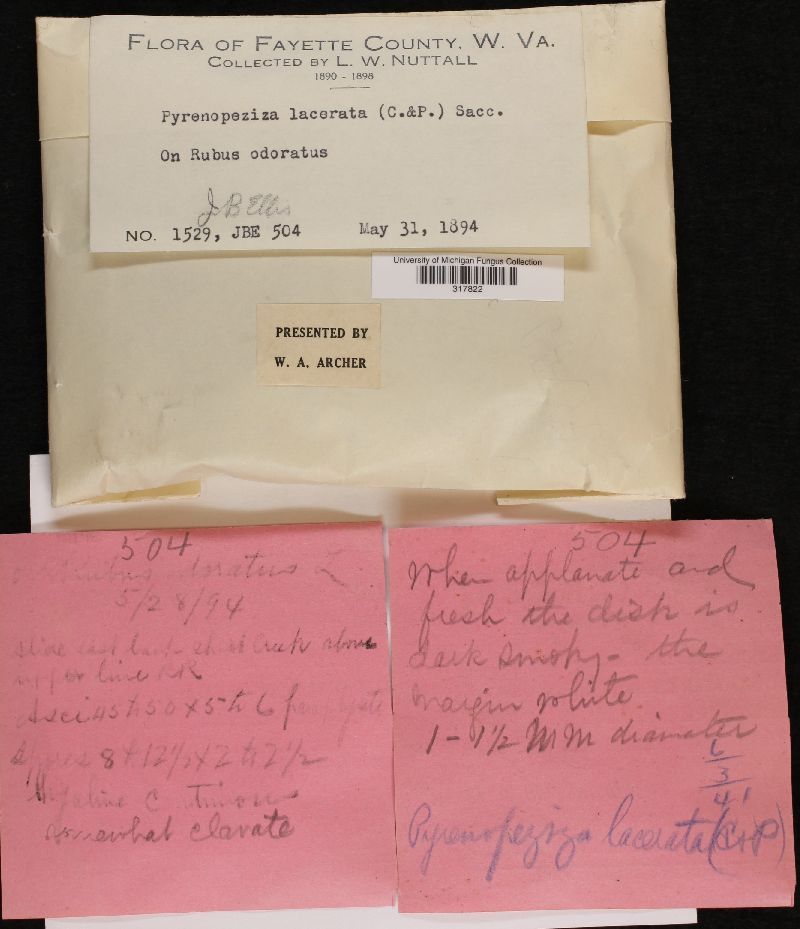 FLORA OF FAYETTE COUNTY, W. VA.
COLLECTED BY L. W. NUTTALL
1890 - 1898
Pyrenopeziza lacerata (C.&P.) Sacc.
On Rubus odoratus
J B Ellis
NO. 1529, JBE 504 May 31, 1894
University of Michigan Fungus Collection
317822
PRESENTED BY
W. A. ARCHER
504
Rubus odoratus L
5/28/94
slide east bank short creek above
upper line RR
Asci 45 to 50 x 5 to 6
Spores 8 to 12 1/2 x 2 to 2 1/2
Hyaline continuous
somewhat clavate
504
When applanate and
fresh the disk is
dark smoky - the
margin white
1 - 1 1/2 MM diameter
6
3
4'
Pyrenopeziza lacerata (C & P)